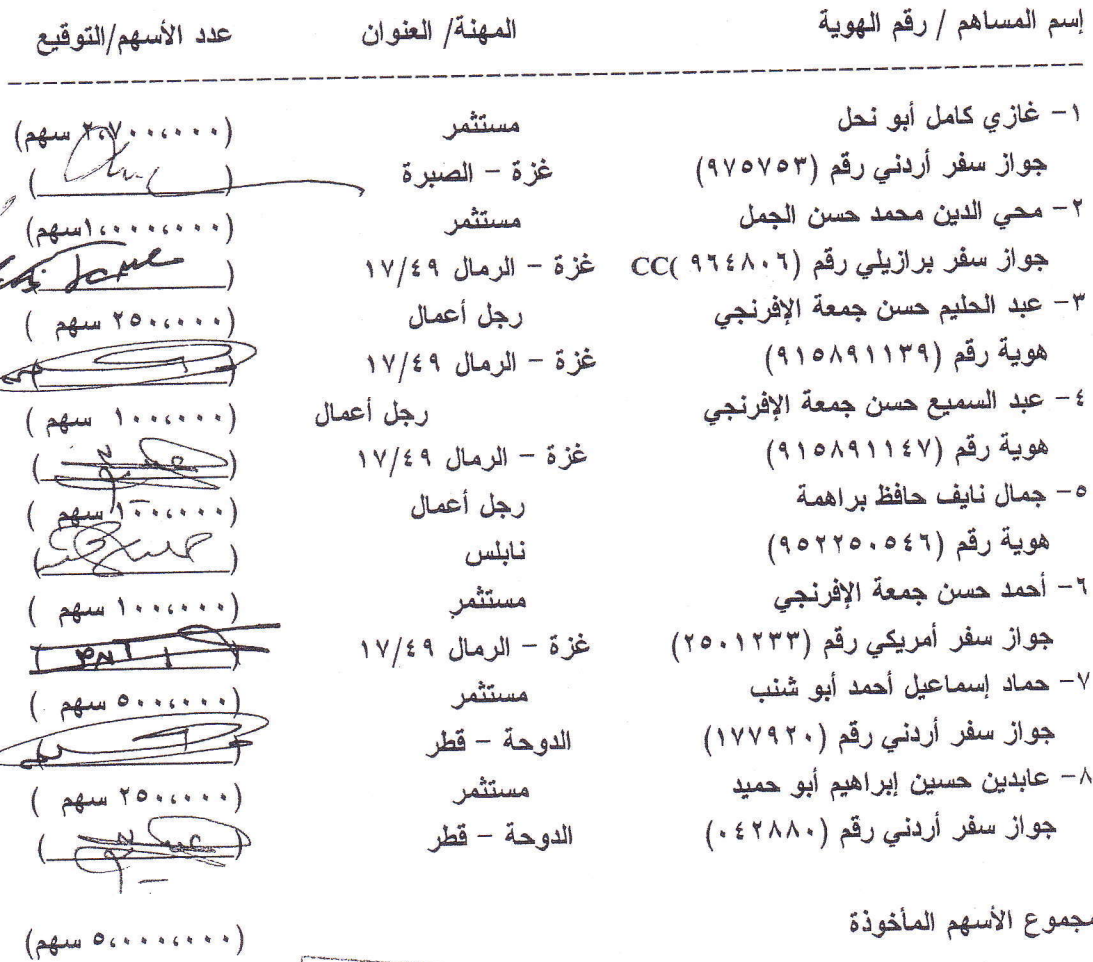 إسم المساهم / رقم الهوية المهنة/ العنوان عدد الأسهم/التوقيع
١- غازي كامل أبو نحل مستثمر (٢،٧٠٠،٠٠٠ سهم)
جواز سفر أردني رقم (٩٧٥٧٥٣) غزة - الصبرة
٢- محي الدين محمد حسن الجمل مستثمر (١،٠٠٠،٠٠٠سهم)
جواز سفر برازيلي رقم (٩٦٤٨٠٦ )CC غزة - الرمال ١٧/٤٩
٣- عبد الحليم حسن جمعة الإفرنجي رجل أعمال (٢٥٠،٠٠٠ سهم )
هوية رقم (٩١٥٨٩١١٣٩) غزة - الرمال ١٧/٤٩
٤- عبد السميع حسن جمعة الإفرنجي رجل أعمال (١٠٠،٠٠٠ سهم )
هوية رقم (٩١٥٨٩١١٤٧) غزة - الرمال ١٧/٤٩
٥- جمال نايف حافظ براهمة رجل أعمال (١٠٠،٠٠٠ سهم )
هوية رقم (٩٥٢٢٥٠٥٤٦) نابلس
٦- أحمد حسن جمعة الإفرنجي مستثمر (١٠٠،٠٠٠ سهم )
جواز سفر أمريكي رقم (٢٥٠١٢٣٣) غزة - الرمال ١٧/٤٩
٧- حماد إسماعيل أحمد أبو شنب مستثمر (٥٠٠،٠٠٠ سهم )
جواز سفر أردني رقم (١٧٧٩٢٠) الدوحة - قطر
٨- عابدين حسين إبراهيم أبو حميد مستثمر (٢٥٠،٠٠٠ سهم )
جواز سفر أردني رقم (٠٤٢٨٨٠) الدوحة - قطر
مجموع الأسهم المأخوذة (٥،٠٠٠،٠٠٠ سهم)